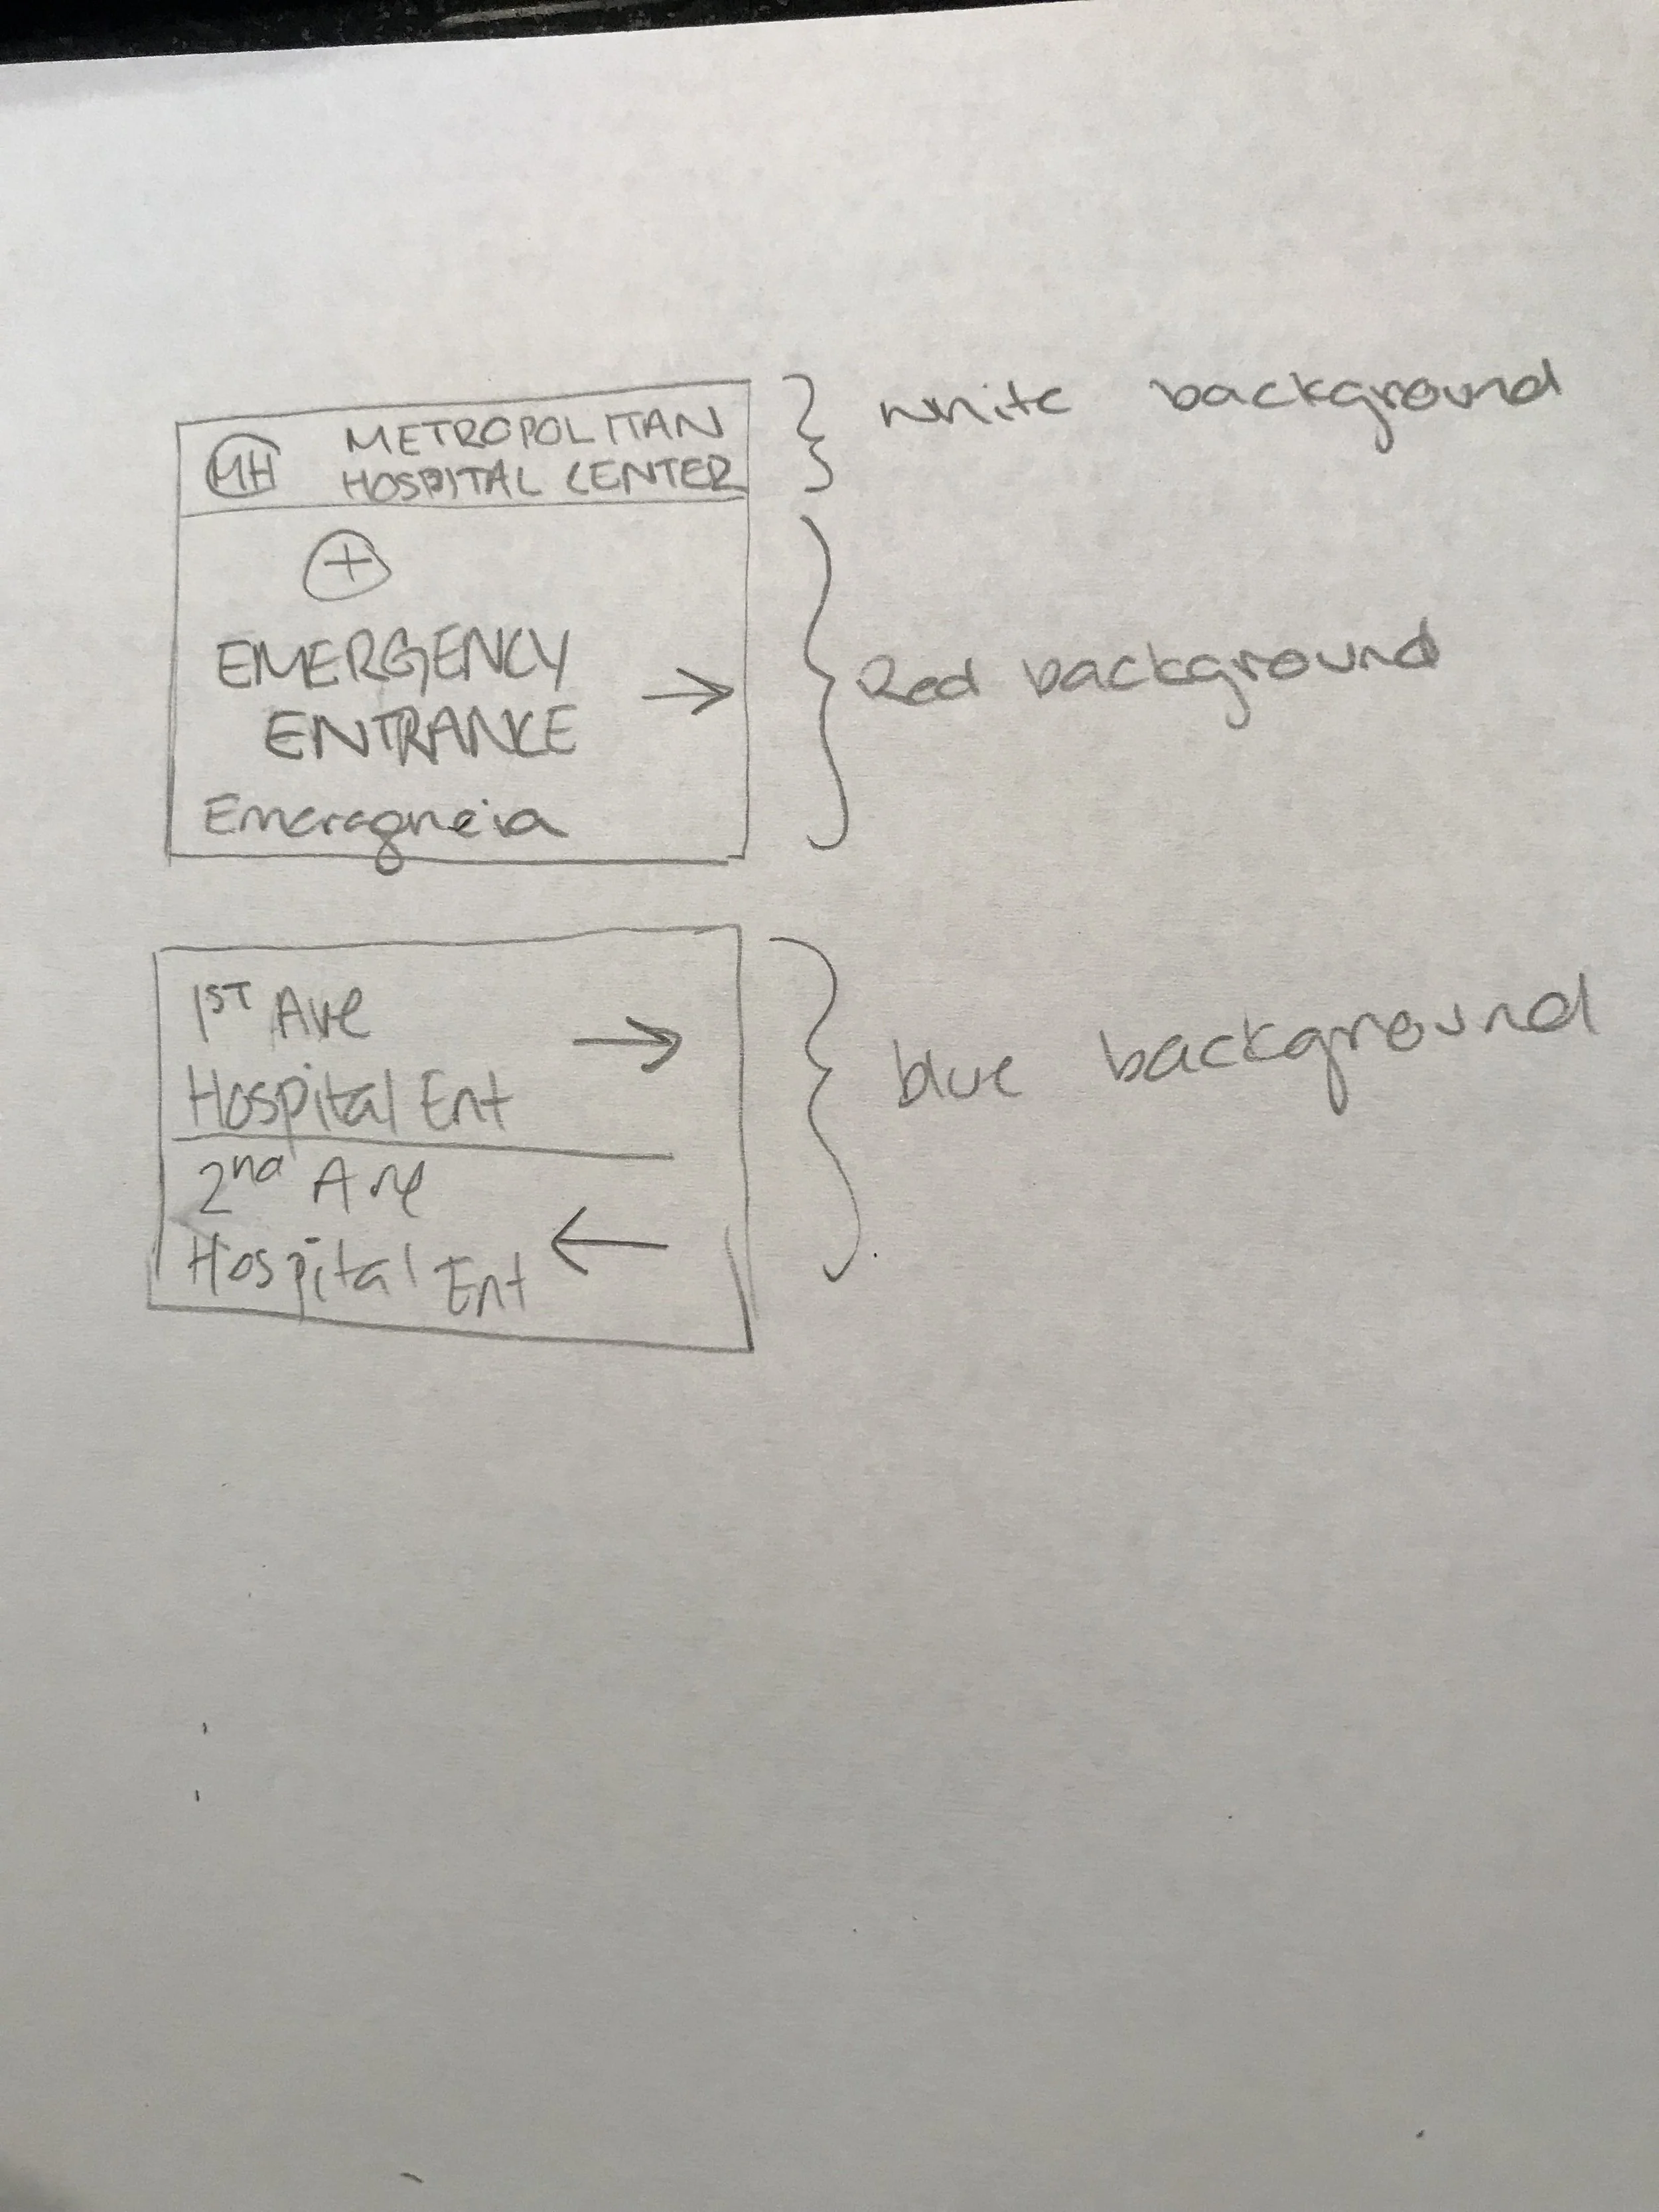 MH METROPOLITAN
HOSPITAL CENTER
white background
+
EMERGENCY
ENTRANCE
Red background
Emeragneia
1ST Ave
Hospital Ent
blue background
2nd Ave
Hospital Ent